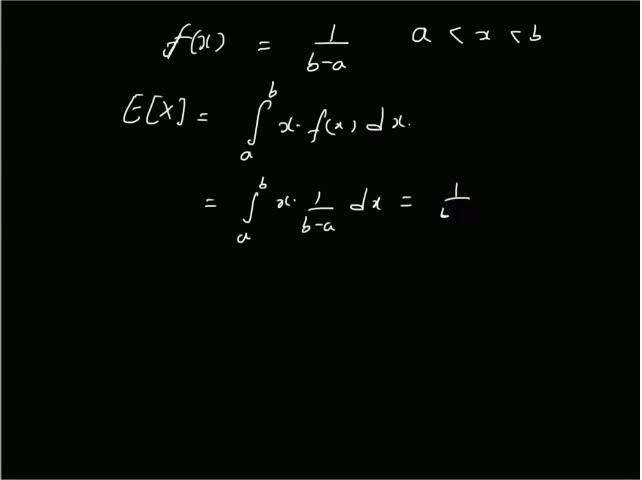 f(x) = 1/(b-a) a < x < b
E[X] = ∫_a^b x. f(x) dx.
= ∫_a^b x. 1/(b-a) dx = 1/